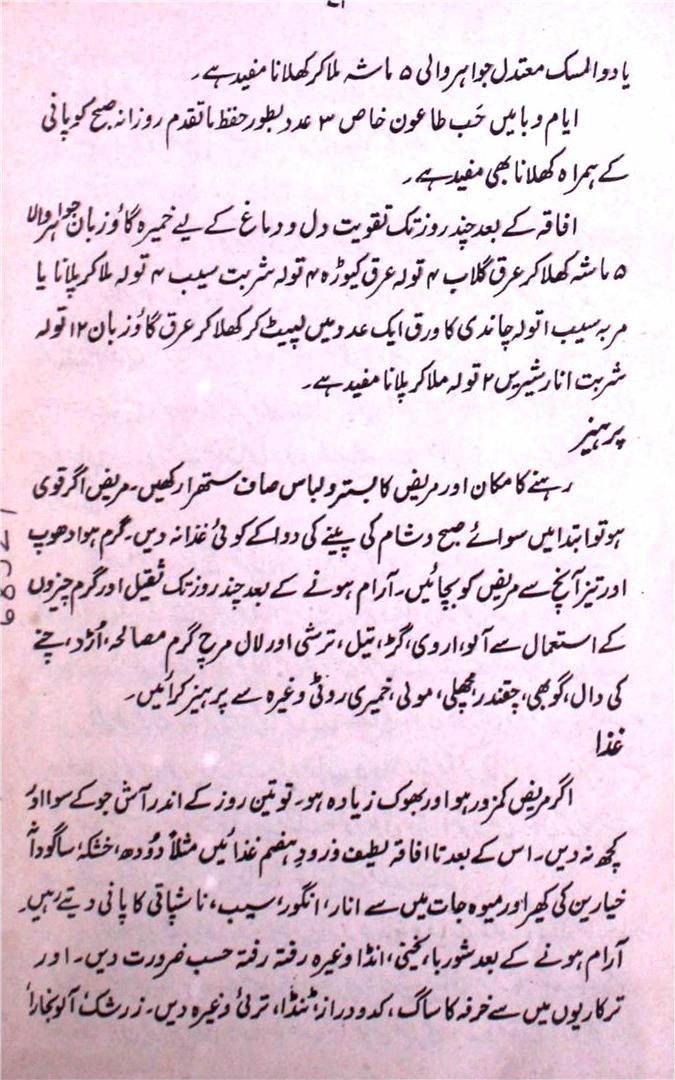 ۲۱
یا دوا المسک معتدل جواہر والی ۵ ماشہ ملا کر کھلانا مفید ہے۔
ایام وبا میں حَب طاعون خاص ۳ عدد بطور حفظ ماتقدم روزانہ صبح کو پانی
کے ہمراہ کھلانا بھی مفید ہے۔
افاقہ کے بعد چند روز تک تقویت دل و دماغ کے لیے خمیرہ گاؤ زبان جواہر والا
۵ ماشہ کھلا کر عرق گلاب ۴ تولہ عرق کیوڑہ ۴ تولہ شربت سیب ۴ تولہ ملا کر پلانا یا
مربہ سیب ۱ تولہ چاندی کا ورق ایک عدد میں لپیٹ کر کھلا کر عرق گاؤ زبان ۱۲ تولہ
شربت انار شیریں ۲ تولہ ملا کر پلانا مفید ہے۔
پرہیز
رہنے کا مکان اور مریض کا بستر و لباس صاف ستھرا رکھیں۔ مریض اگر قوی
ہو تو ابتدا میں سوائے صبح و شام کی پینے کی دوا کے کوئی غذا نہ دیں۔ گرم ہوا دھوپ
اور تیز آنچ سے مریض کو بچائیں۔ آرام ہونے کے بعد چند روز تک ثقیل اور گرم چیزوں
کے استعمال سے آلو، اروی، گڑ، تیل، ترشی اور لال مرچ گرم مصالحہ، اُڑد، چنے
کی دال، گوبھی، چقندر، مچھلی، مولی، خمیری روٹی وغیرہ سے پرہیز کرائیں۔
غذا
اگر مریض کمزور ہو اور بھوک زیادہ ہو۔ تو تین روز کے اندر آش جو کے سوا اور
کچھ نہ دیں۔ اس کے بعد تا افاقہ لطیف و زود ہضم غذائیں مثلاً دودھ، خشکہ، ساگودانہ
خیارین کی کھیر اور میوہ جات میں سے انار، انگور، سیب، ناشپاتی کا پانی دیتے رہیں۔
آرام ہونے کے بعد شوربا، یخنی، انڈا وغیرہ رفتہ رفتہ حسب ضرورت دیں۔ اور
ترکاریوں میں سے خرفہ کا ساگ، کدو دراز، ٹنڈا، ترئی وغیرہ دیں۔ زرشک، آلو بخارا